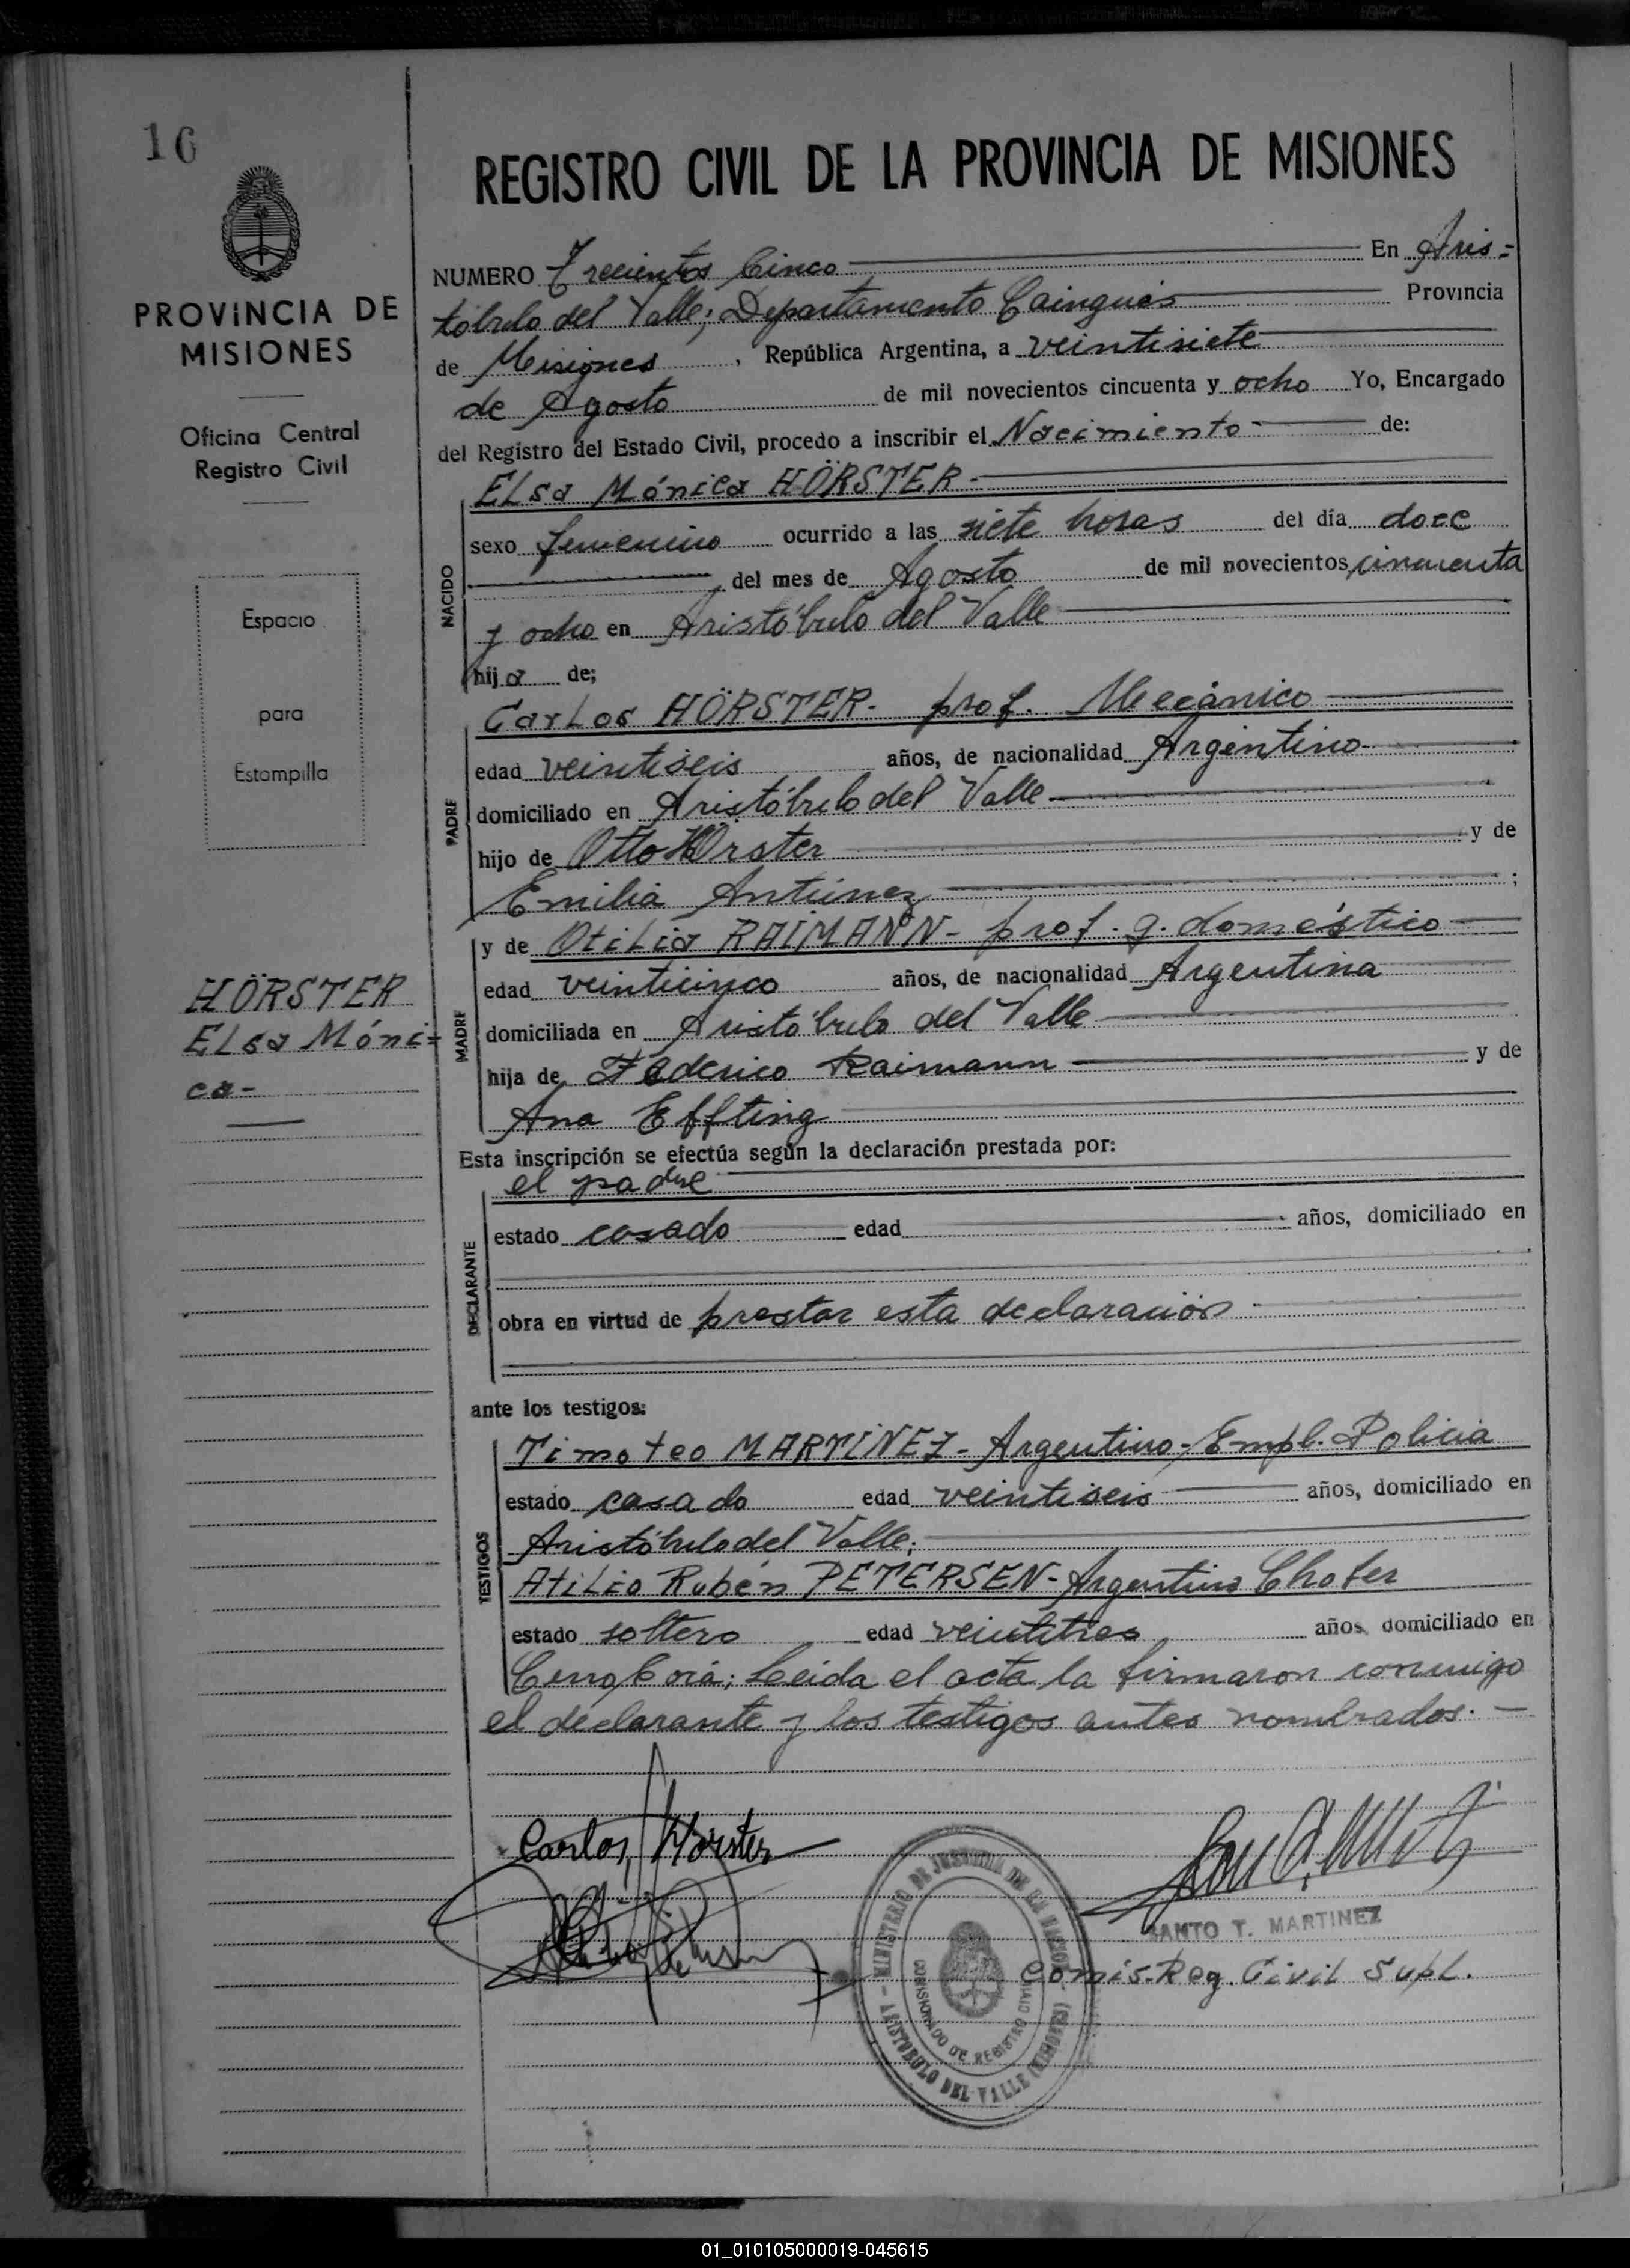 16
PROVINCIA DE
MISIONES
Oficina Central
Registro Civil
Espacio
para
Estampilla
HÖRSTER
Elsa Móni=
ca-
REGISTRO CIVIL DE LA PROVINCIA DE MISIONES
NUMERO Trecientos Cinco En Aris=
tóbulo del Valle; Departamento Cainguás Provincia
de Misiones, República Argentina, a veintisiete
de Agosto de mil novecientos cincuenta y ocho Yo, Encargado
del Registro del Estado Civil, procedo a inscribir el Nacimiento de:
NACIDO
Elsa Mónica HÖRSTER-
sexo femenino ocurrido a las siete horas del día doce
del mes de Agosto de mil novecientos cincuenta
y ocho en Aristóbulo del Valle
hija de;
PADRE
Carlos HÖRSTER- prof. Mecánico
edad veintiseis años, de nacionalidad Argentino
domiciliado en Aristóbulo del Valle
hijo de Otto Hörster y de
Emilia Antúnez ;
MADRE
y de Otilia RAIMANN- prof. q. doméstico
edad veinticinco años, de nacionalidad Argentina
domiciliada en Aristóbulo del Valle
hija de Federico Raimann y de
Ana Effting
Esta inscripción se efectúa según la declaración prestada por:
DECLARANTE
el padre
estado casado edad años, domiciliado en
obra en virtud de prestar esta declaración
ante los testigos:
TESTIGOS
Timoteo MARTINEZ- Argentino- Empl. Policia
estado casado edad veintiseis años, domiciliado en
Aristóbulo del Valle;
Atilio Rubén PETERSEN- Argentino Chofer
estado soltero edad veintitres años, domiciliado en
Cerro Corá; Leida el acta la firmaron conmigo
el declarante y los testigos antes nombrados.-
Carlos Hörster
SANTO T. MARTINEZ
Comis. Reg. Civil Supl.
MINISTERIO DE JUSTICIA DE LA NACION
COMISIONADO DE REGISTRO CIVIL
ARISTOBULO DEL VALLE (MISIONES)
01_010105000019-045615